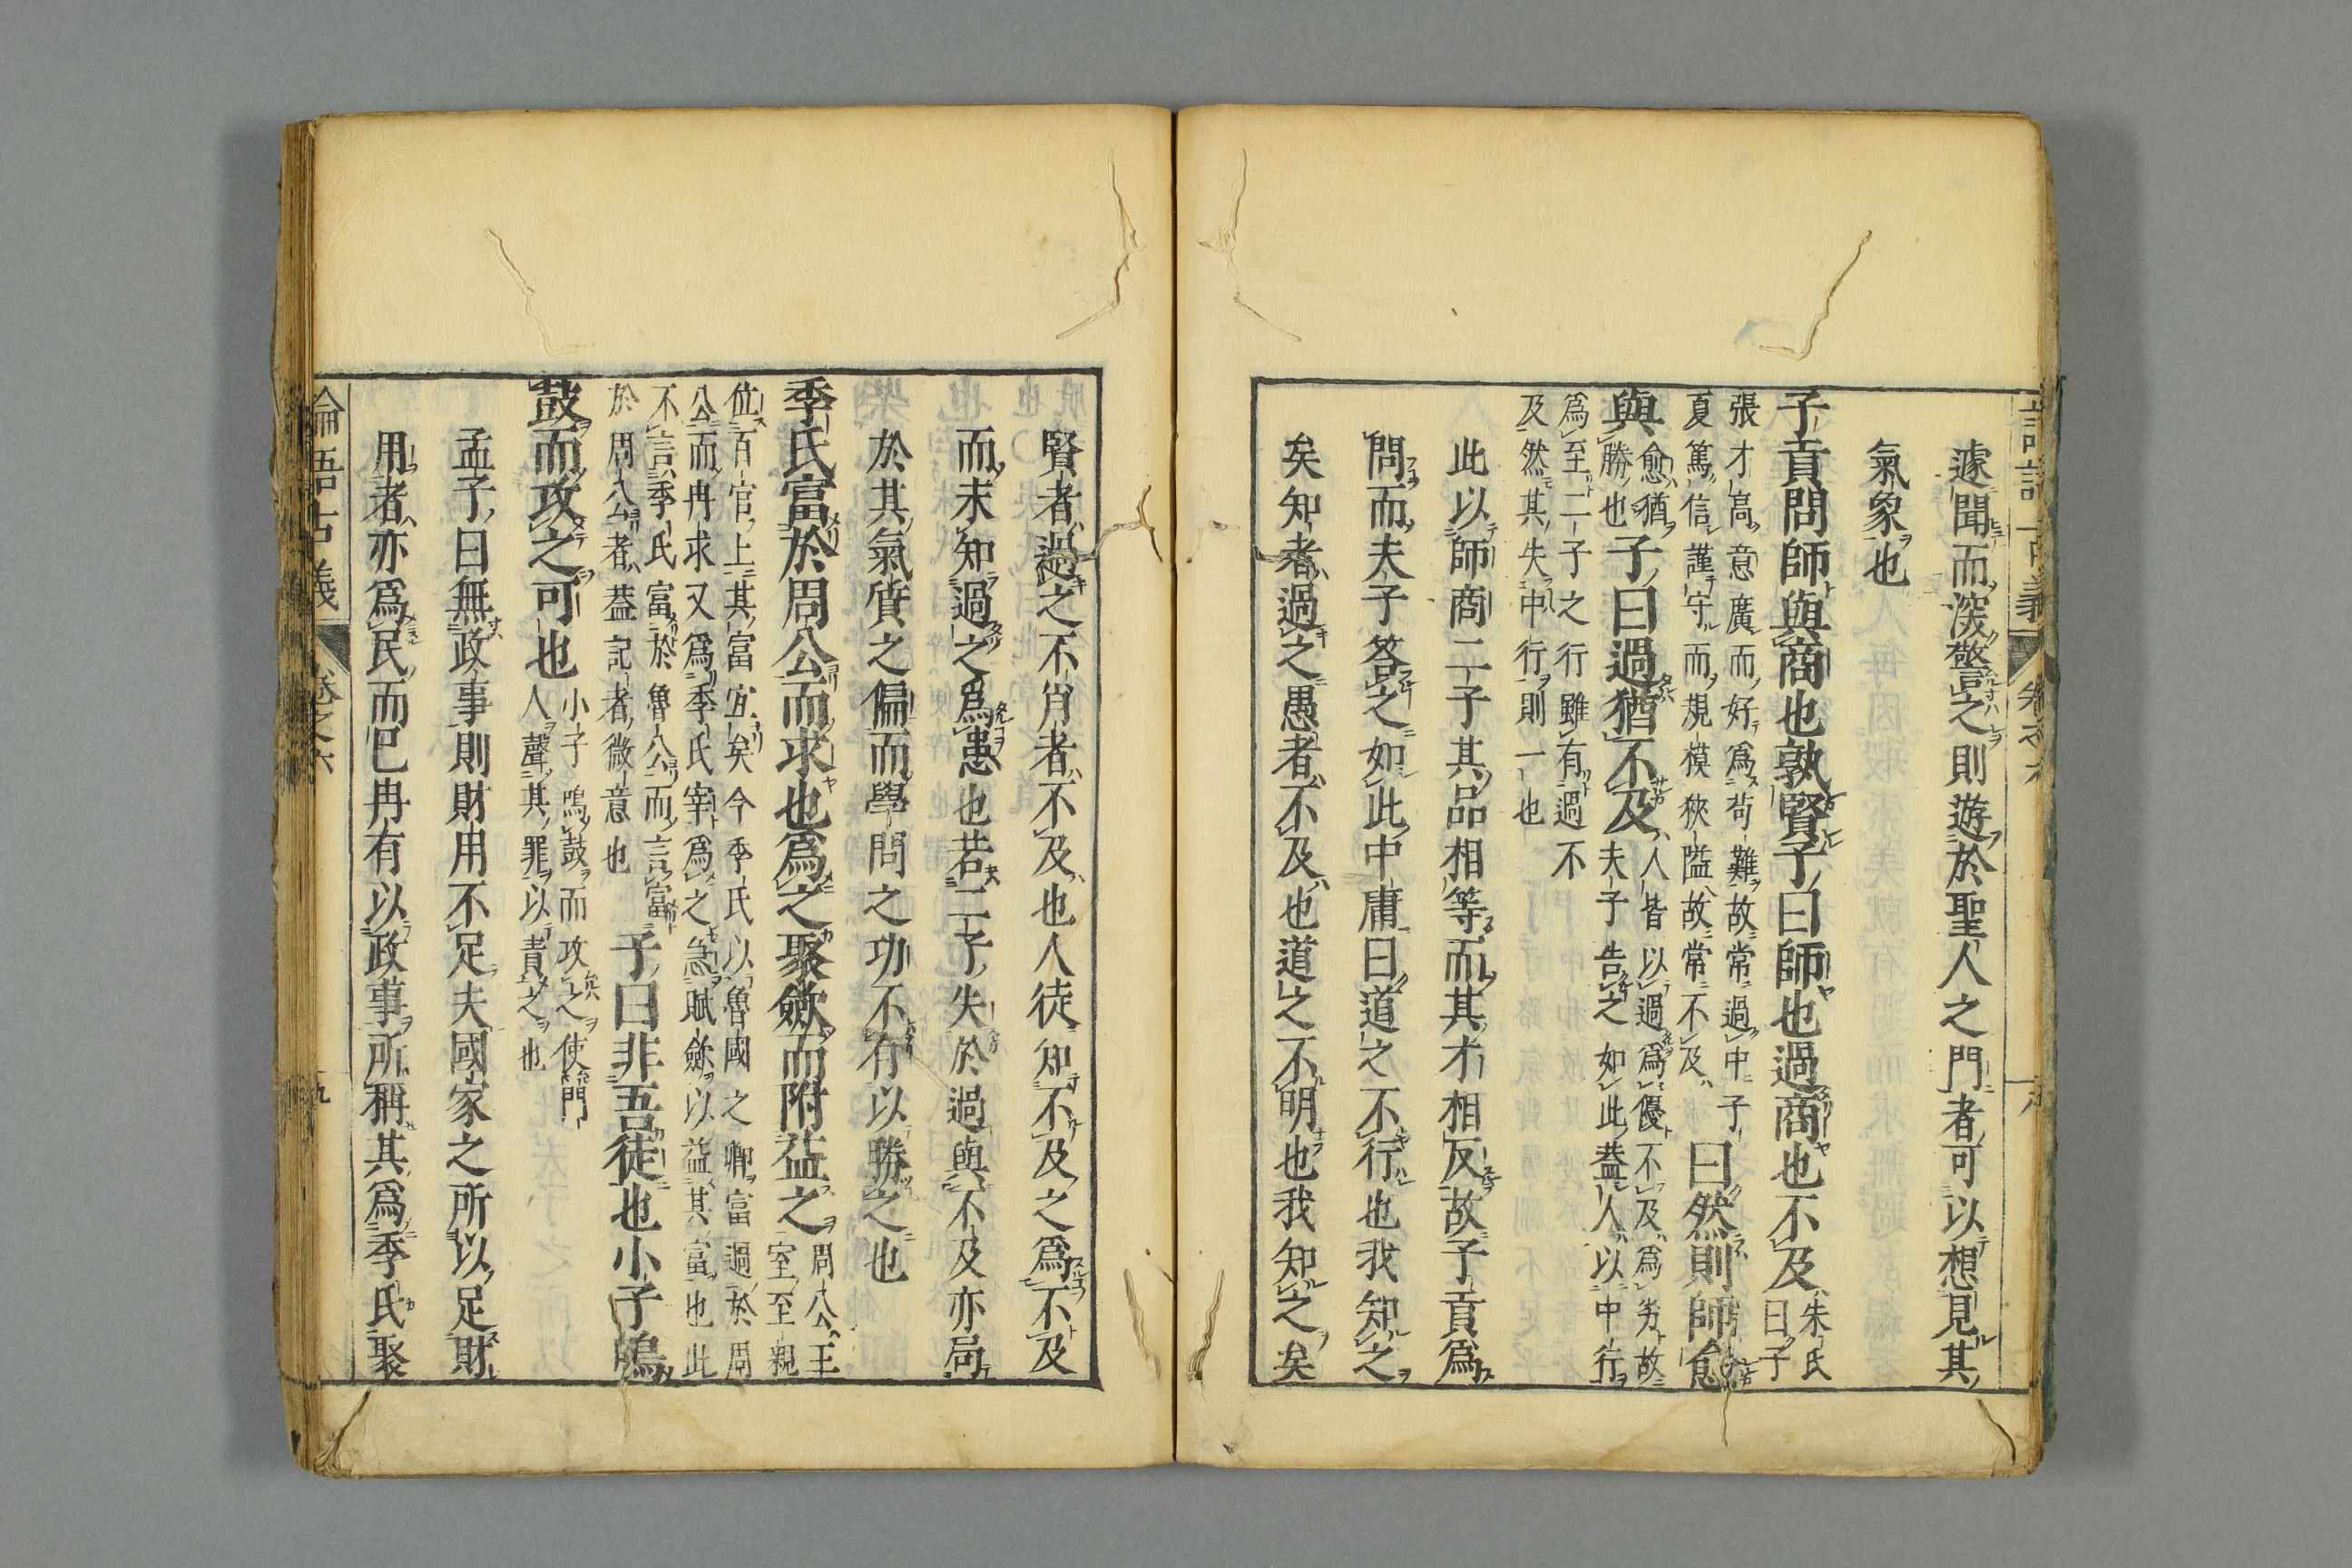 遽聞而深警之則遊於聖人之門者可以想見其
氣象也
子貢問師與商也孰賢子曰師也過商也不及
朱氏曰子
張才高意廣而好為苟難故常過中子
夏篤信謹守而規模狹隘故常不及
曰然則師愈
與
愈猶勝也
子曰過猶不及
人皆以過為優不及為劣故
夫子告之如此蓋人以中行
為至二子之行雖有過不
及然其失中行則一也
此以師商二子其品相等而其才相反故子貢爲
問而夫子答之如此中庸曰道之不行也我知之
矣知者過之愚者不及也道之不明也我知之矣
賢者過之不肖者不及也人徒知不及之爲不及
而未知過之爲患也若二子失於過與不及亦局
於其氣質之偏而學問之功不有以勝之也
季氏富於周公而求也爲之聚斂而附益之
周公王
室至親
位百官上其富宜矣今季氏以魯國之卿富過於周
公而冉求又爲季氏宰爲之急賦斂以益其富也此
不言季氏富於魯公而言富
於周公者蓋記者微意也
子曰非吾徒也小子鳴
鼓而攻之可也
小子鳴鼓而攻之使門
人聲其罪以責之也
孟子曰無政事則財用不足夫國家之所以足財
用者亦爲民而已冉有以政事所稱其爲季氏聚
論語古義
卷之六
九